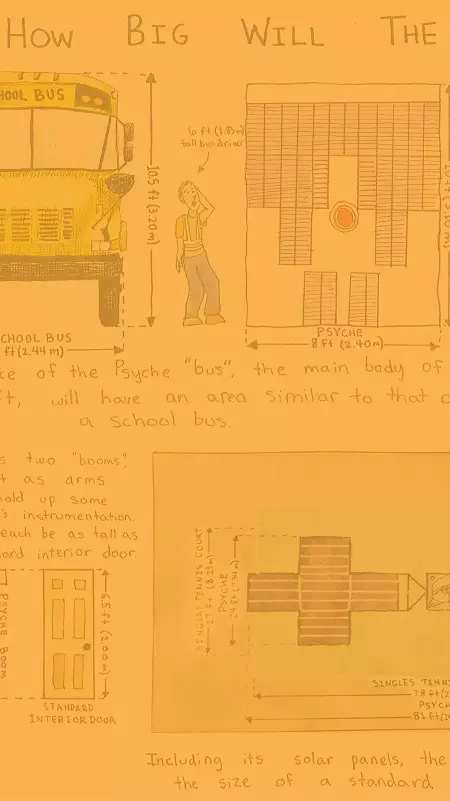 HOW BIG WILL THE
HOOL BUS
10.5 ft (3.20 m)
6 ft (1.83m)
tall bus driver
CHOOL BUS
ft (2.44 m)
PSYCHE
8 ft (2.40m)
ce of the Psyche "bus", the main body of
ft, will have an area similar to that o
a school bus.
s two "booms",
t as arms
hold up some
's instrumentation.
each be as tall as
dard interior door.
PSYCHE BOOM
6.5 ft (2.00m)
STANDARD
INTERIOR DOOR
SINGLES TENNIS COURT
(8.23m)
PSYCHE
SINGLES TENN
78 ft (2
PSYC
81 ft (2
Including its solar panels, the
the size of a standard